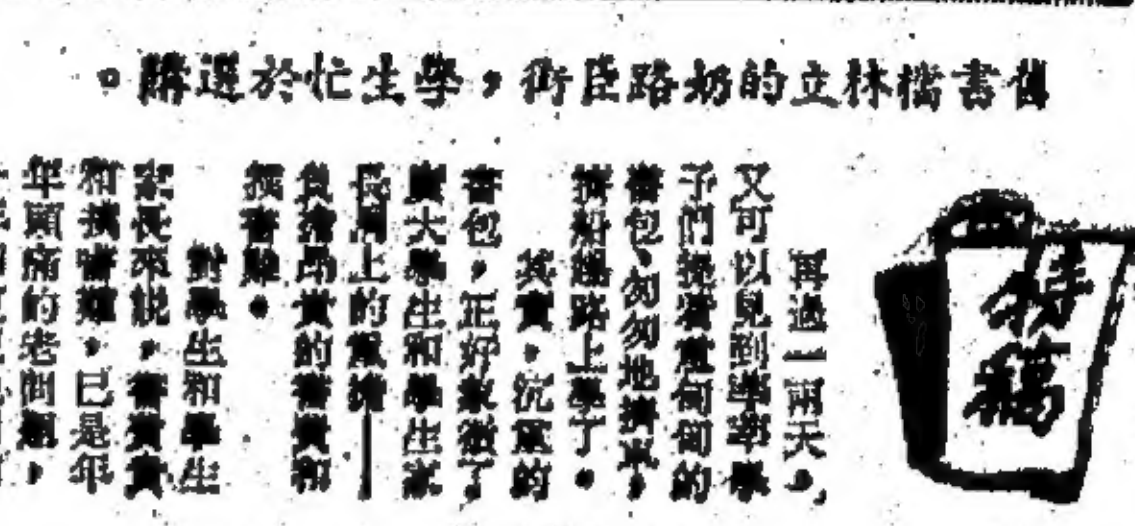 舊書檔林立的奶路臣街，學生忙於選購。
特稿
再過一兩天，
又可以見到莘莘學
子們揹着重甸甸的
書包、匆匆地擠車，
擠船趕路上學了。
其實，沉重的
書包，正好象徵了
廣大學生和學生家
長肩上的重擔——
負擔昂貴的書費和
書難。
對學生和學生
家長來說，書費貴
和找書難，已是年
年頭痛的老問題，